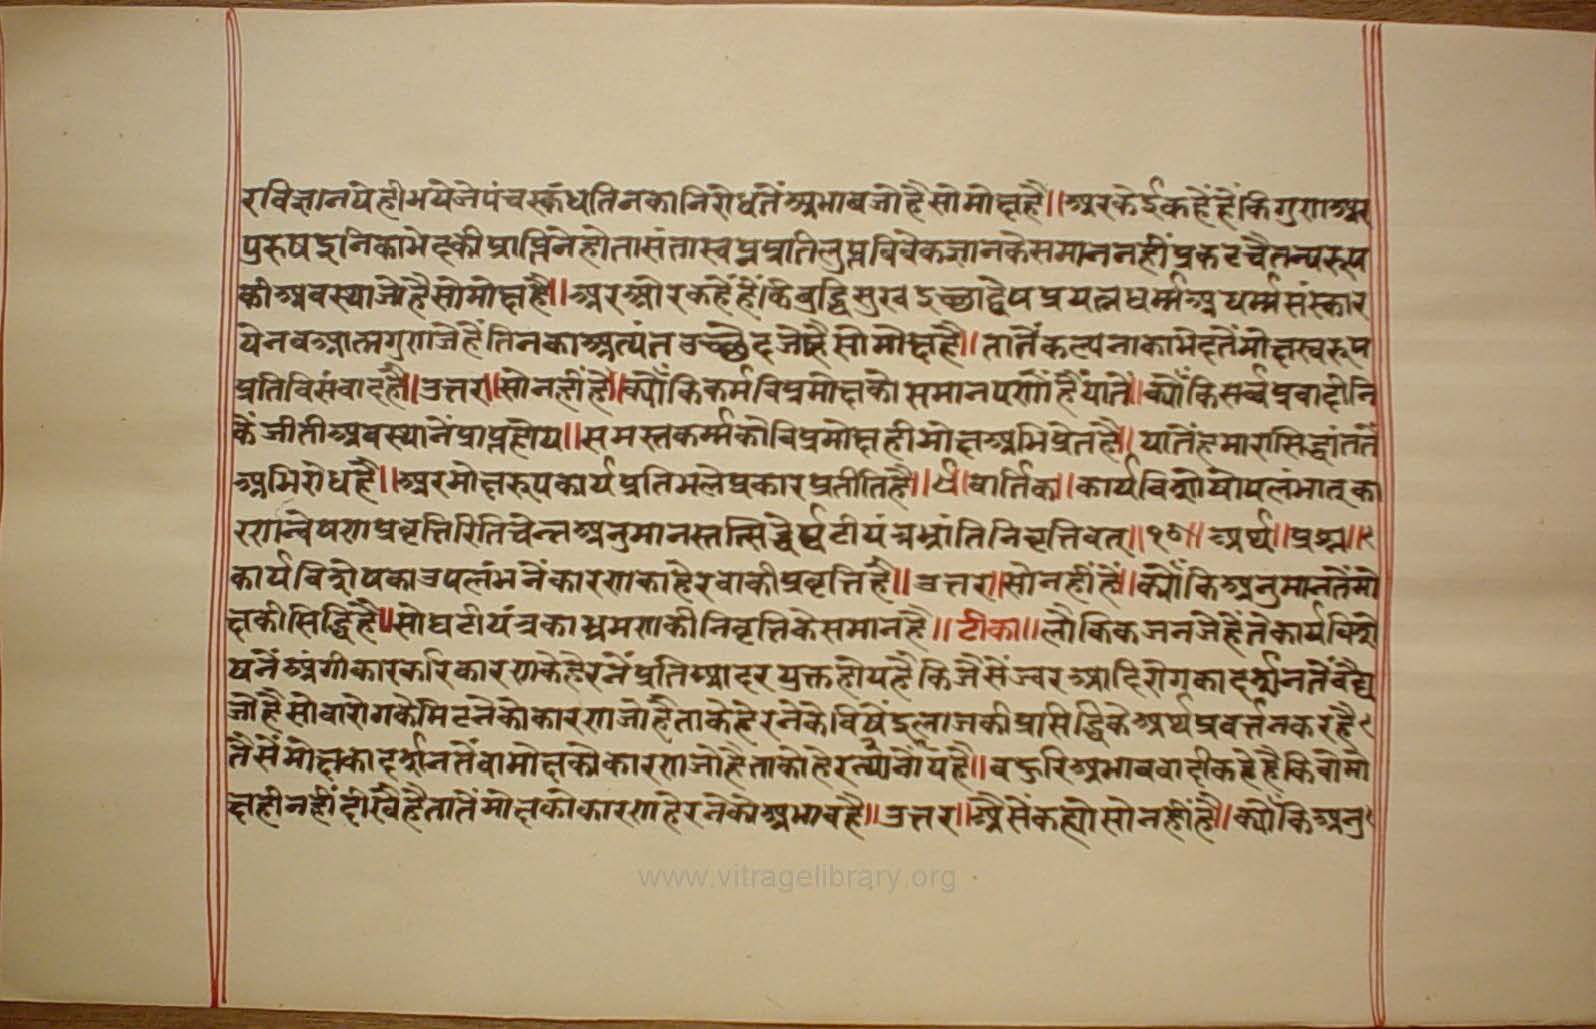 रविज्ञानयेही भये जे पंचस्कंध तिनका निरोधतें अभाव जो है सो मोक्ष है॥ अर केई कहें हैं कि गुण अर
पुरुष इनिका भेदकी प्राप्तिनें होता संता स्वप्न प्रति लुप्त विवेक ज्ञानके समान नहीं प्रकट चैतन्य स्वरूप
की अवस्था जो है सो मोक्ष है॥ अर और कहें हैं कि बुद्धि सुख इच्छा द्वेष प्रयत्न धर्म्म अधर्म्म संस्कार
ये नव आत्मगुण जे हैं तिनका अत्यंत उच्छेद जो है सो मोक्ष है॥ तातें कल्पना का भेदतें मोक्ष स्वरूप
प्रति विसंवाद है॥ उत्तर॥ सो नहीं है॥ क्योंकि कर्म विप्रमोक्षको समानपणों है यातें॥ क्योंकि सर्व्व प्रवादीनि
कें जीती अवस्थानें प्राप्त होय॥ समस्त कर्म्मको विप्रमोक्ष ही मोक्ष अभिप्रेत है॥ यातें हमारा सिद्धांततें
अविरोध है॥ अर मोक्षरूप कार्य प्रति भले प्रकार प्रतीति है॥ ॥ वार्तिक॥ कार्यविशेषोपलंभात् का
रणान्वेषणप्रवृत्तिरिति चेन्न अनुमानस्तत्सिद्धेर्घटीयंत्रभ्रांतिनिवृत्तिवत्॥ ॥ अर्थ॥ प्रश्न॥
कार्य विशेषका उपलंभनें कारणका हेरवाकी प्रवृत्ति है॥ उत्तर॥ सो नहीं है॥ क्योंकि अनुमानतें मो
क्षकी सिद्धि है॥ सो घटीयंत्रका भ्रमणकी निवृत्तिके समान है॥ टीका॥ लौकिक जन जे हैं ते कार्य विशे
षनें अंगीकार करि कारणके हेरनें प्रति आदरयुक्त होय है कि जैसें ज्वर आदि रोगका दर्शनतें वैद्य
जो है सो वा रोगके मिटनेंको कारण जो है ताके हेरनेके विषें इलाजकी प्रसिद्धिके अर्थ प्रवर्त्तन कर है
तैसें मोक्षका दर्शनतें वा मोक्षको कारण जो है ताको हेरत्यो योग्य है॥ बहुरि अभाववादी कहे है कि वो मो
क्ष ही नहीं दीखै है तातें मोक्षको कारण हेरनेको अभाव है॥ उत्तर॥ अैसे कह्यो सो नहीं है॥ क्योंकि अनु
www.vitragelibrary.org